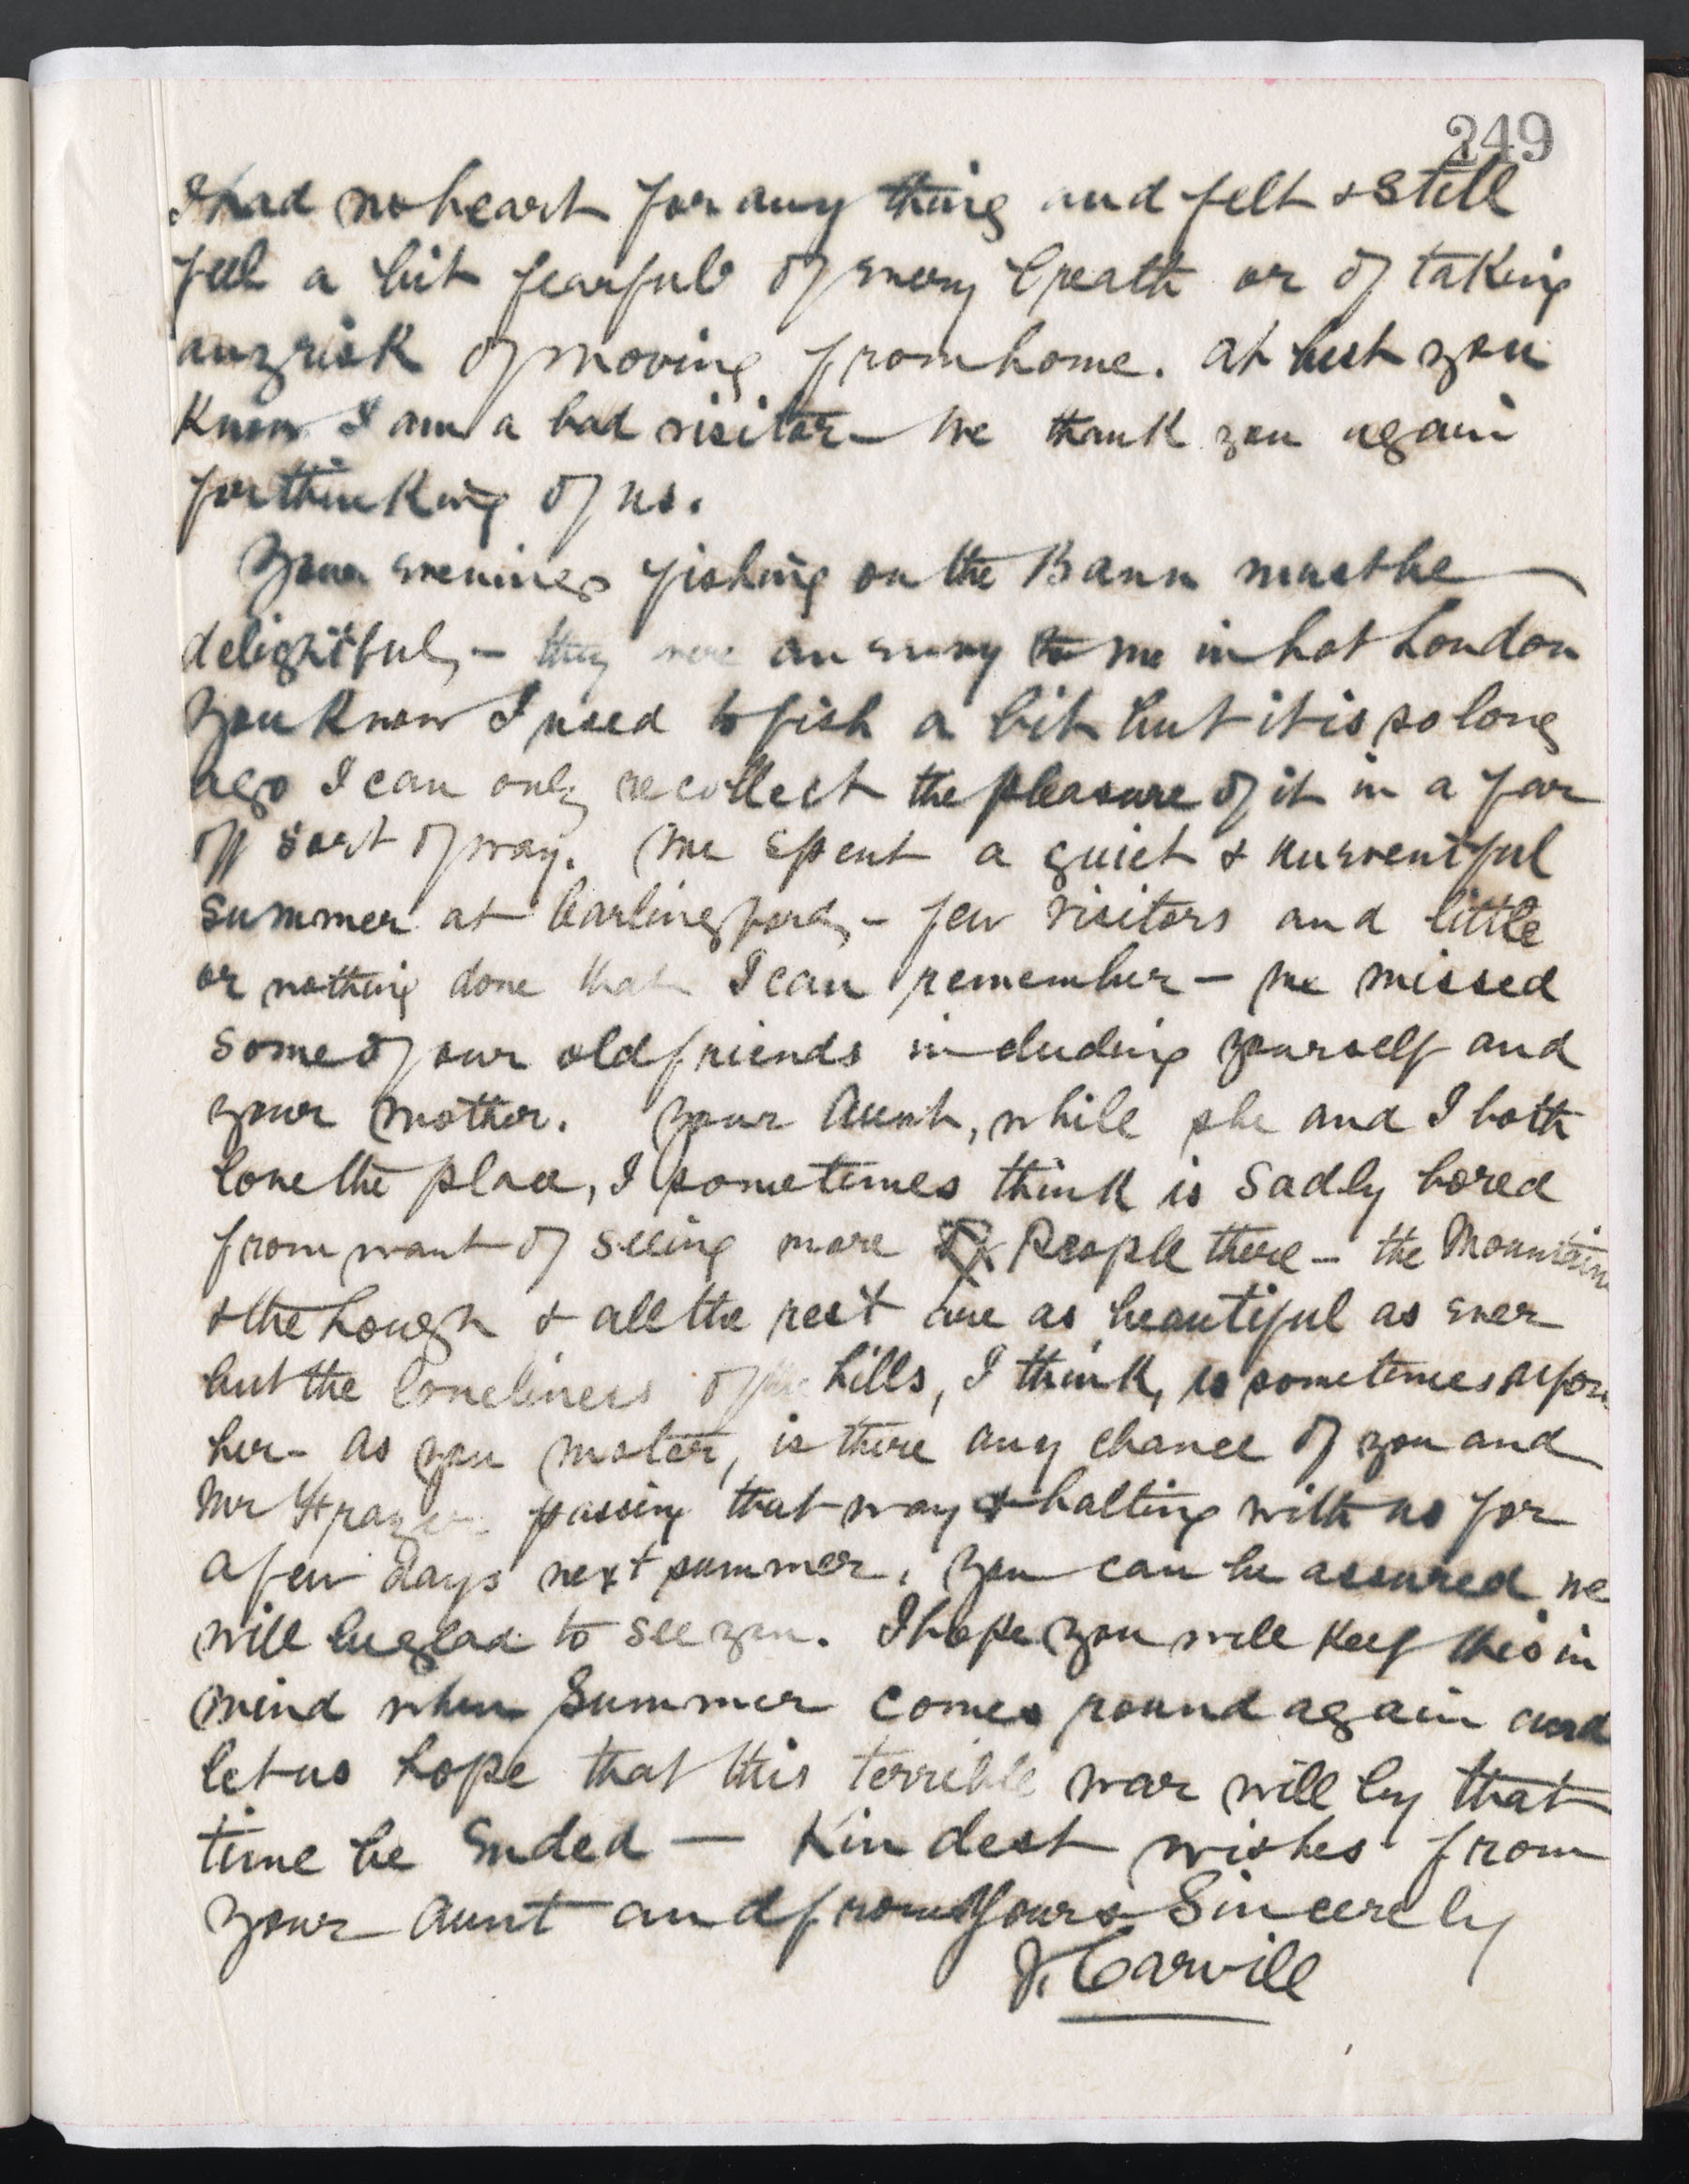 249
I had no heart for any thing and felt & still
feel a bit fearful of every breath or of taking
any risk of moving from home. at best you
know I am a bad visitor – We thank you again
for thinking of us.
Your evenings fishing on the Bann must be
delightful, – they were an envy to me in hot London
You know I used to fish a bit but it is so long
ago I can only recollect the pleasure of it in a far
off sort of way. We spent a quiet & uneventful
summer at Carlingford, – few visitors and little
or nothing done that I can remember – We missed
some of our old friends including yourself and
your mother. Your Aunt, while she and I both
love the place, I sometimes think is sadly bored
from want of seeing more of People there – the Mountain
& the Lough & all the rest are as beautiful as ever
but the loneliness of the hills, I think, is sometimes upon
her – as you motor, is there any chance of you and
Mr Frazer passing that way & halting with us for
a few days next summer. You can be assured we
will be glad to see you. I hope you will keep this in
mind when Summer comes round again and
let us hope that this terrible war will by that
time be Ended — Kindest wishes from
your Aunt and from Yours Sincerely
J. Carvill